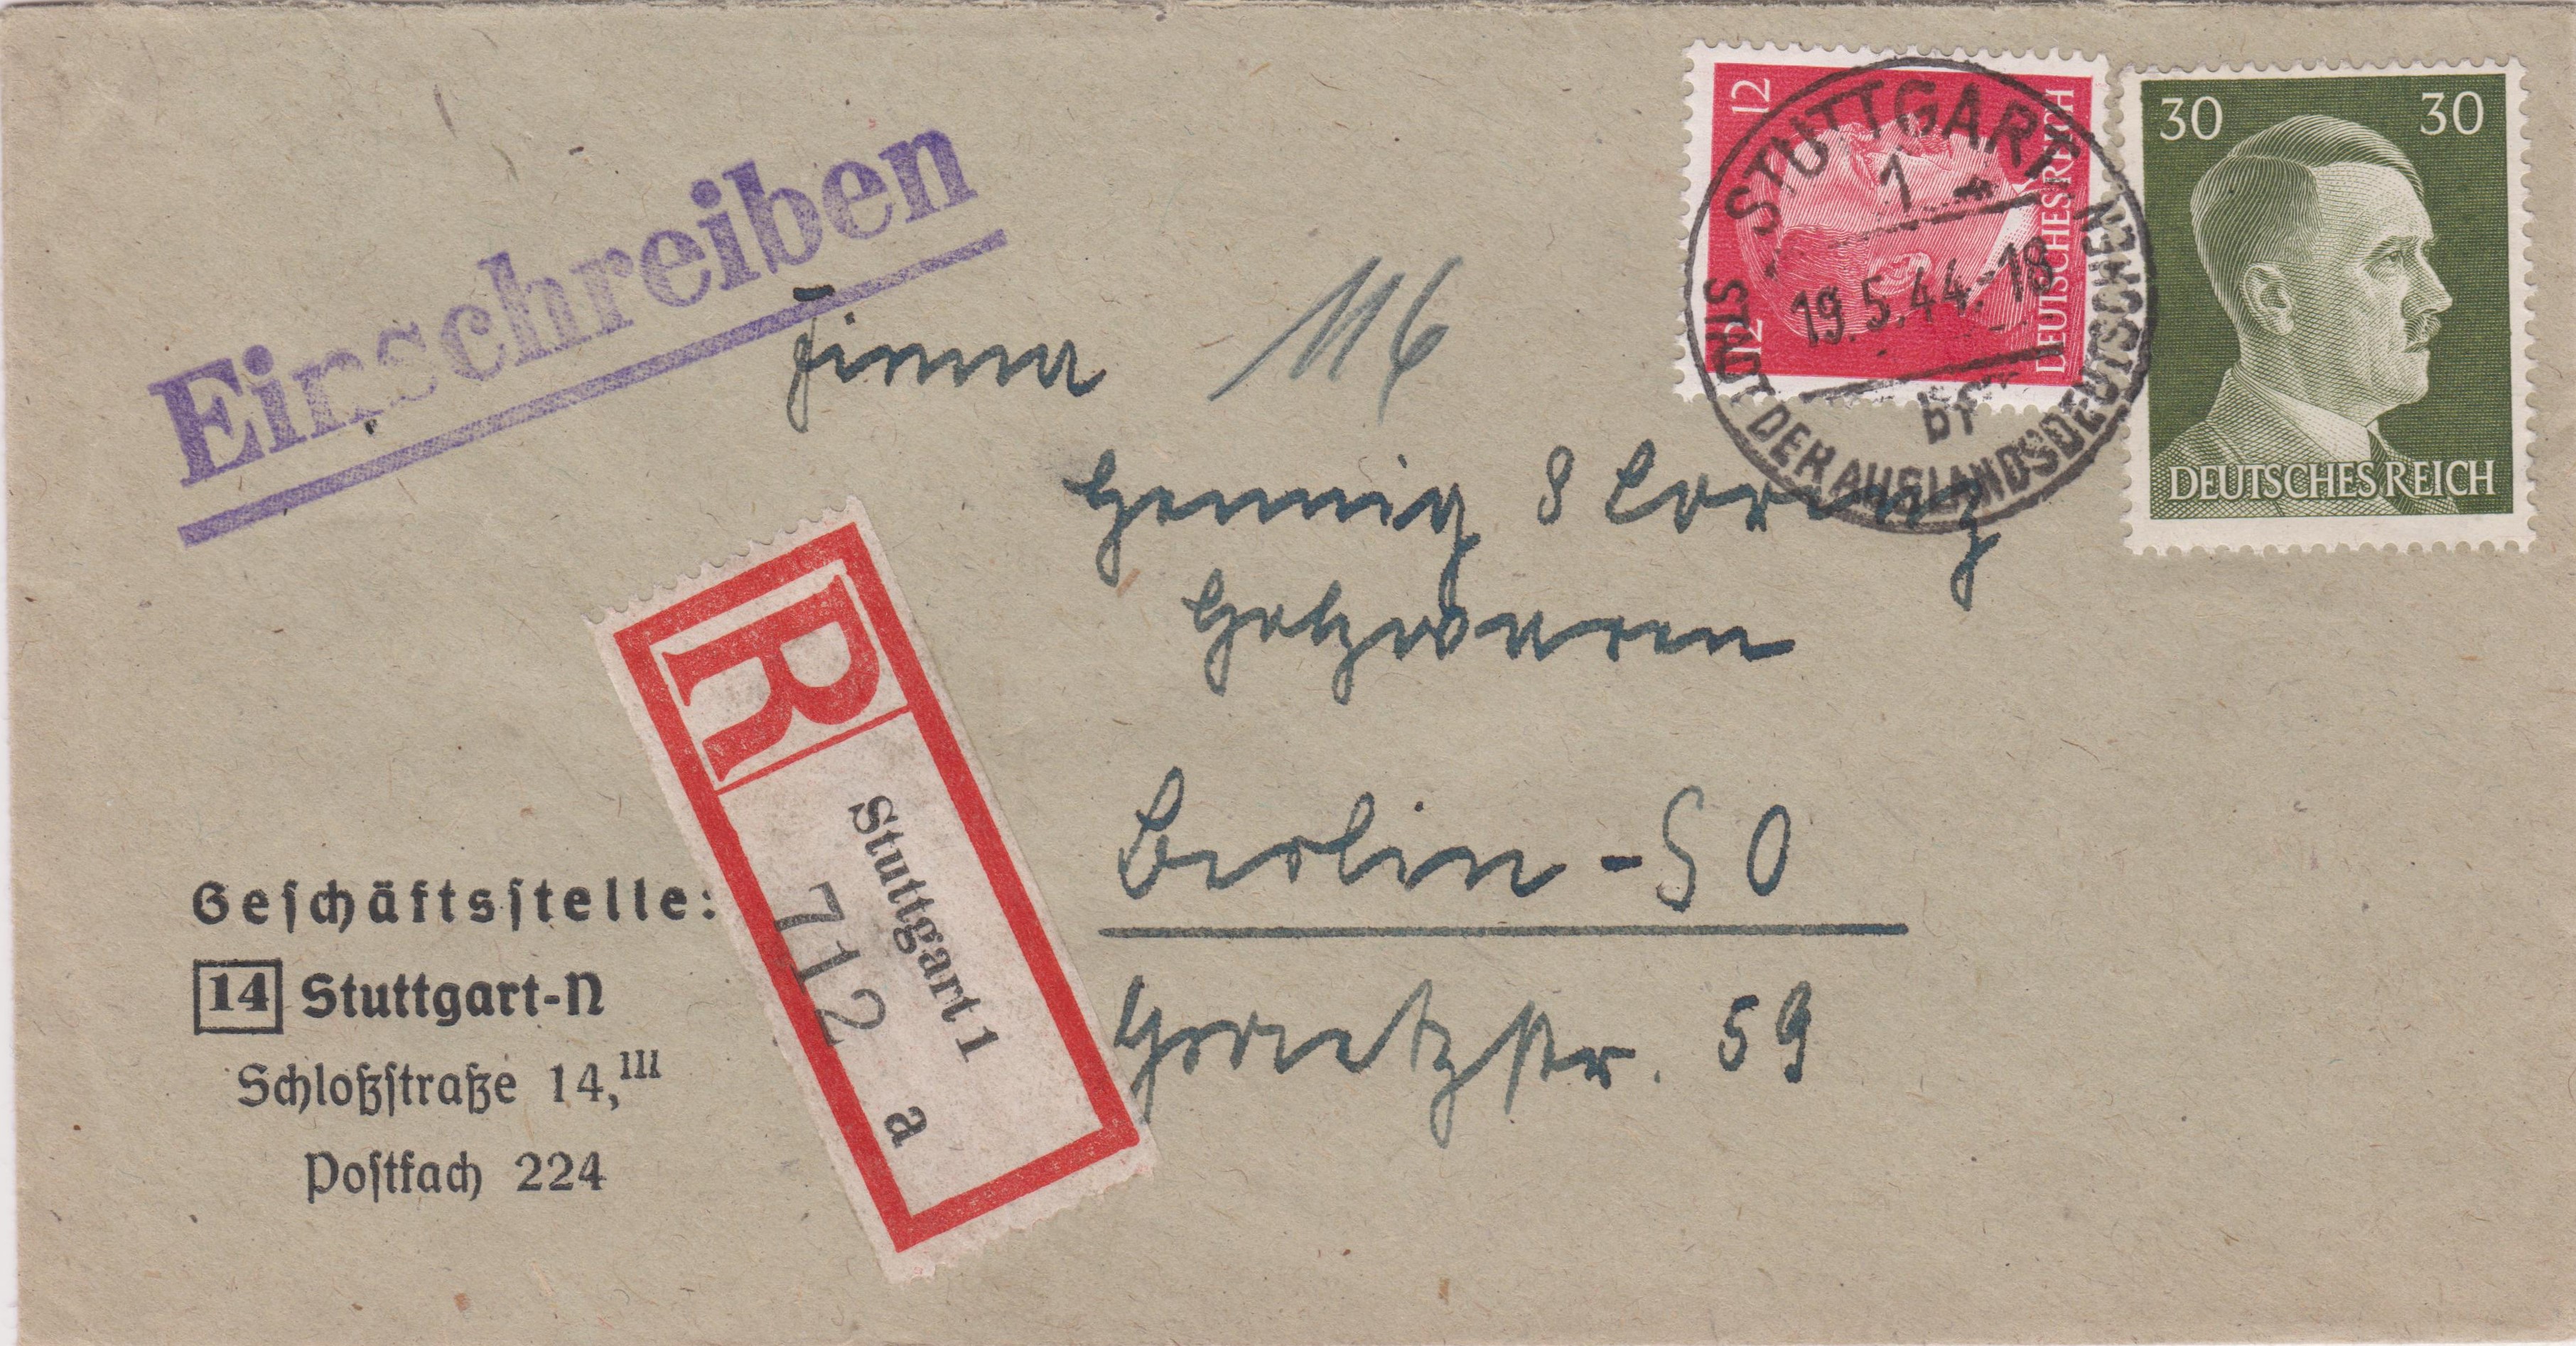 Einschreiben
12
12
DEUTSCHES REICH
30 30
DEUTSCHES REICH
STUTTGART
1
19.5.44.-18
bf
STADT DER AUSLANDSDEUTSCHEN
Firma
116
Hennig & Lorenz
Holzwaren
Berlin-SO
Görlitzstr. 59
R
Stuttgart 1
712
a
Geſchäftsſtelle:
14 Stuttgart-N
Schloßſtraße 14,III
Poſtfach 224